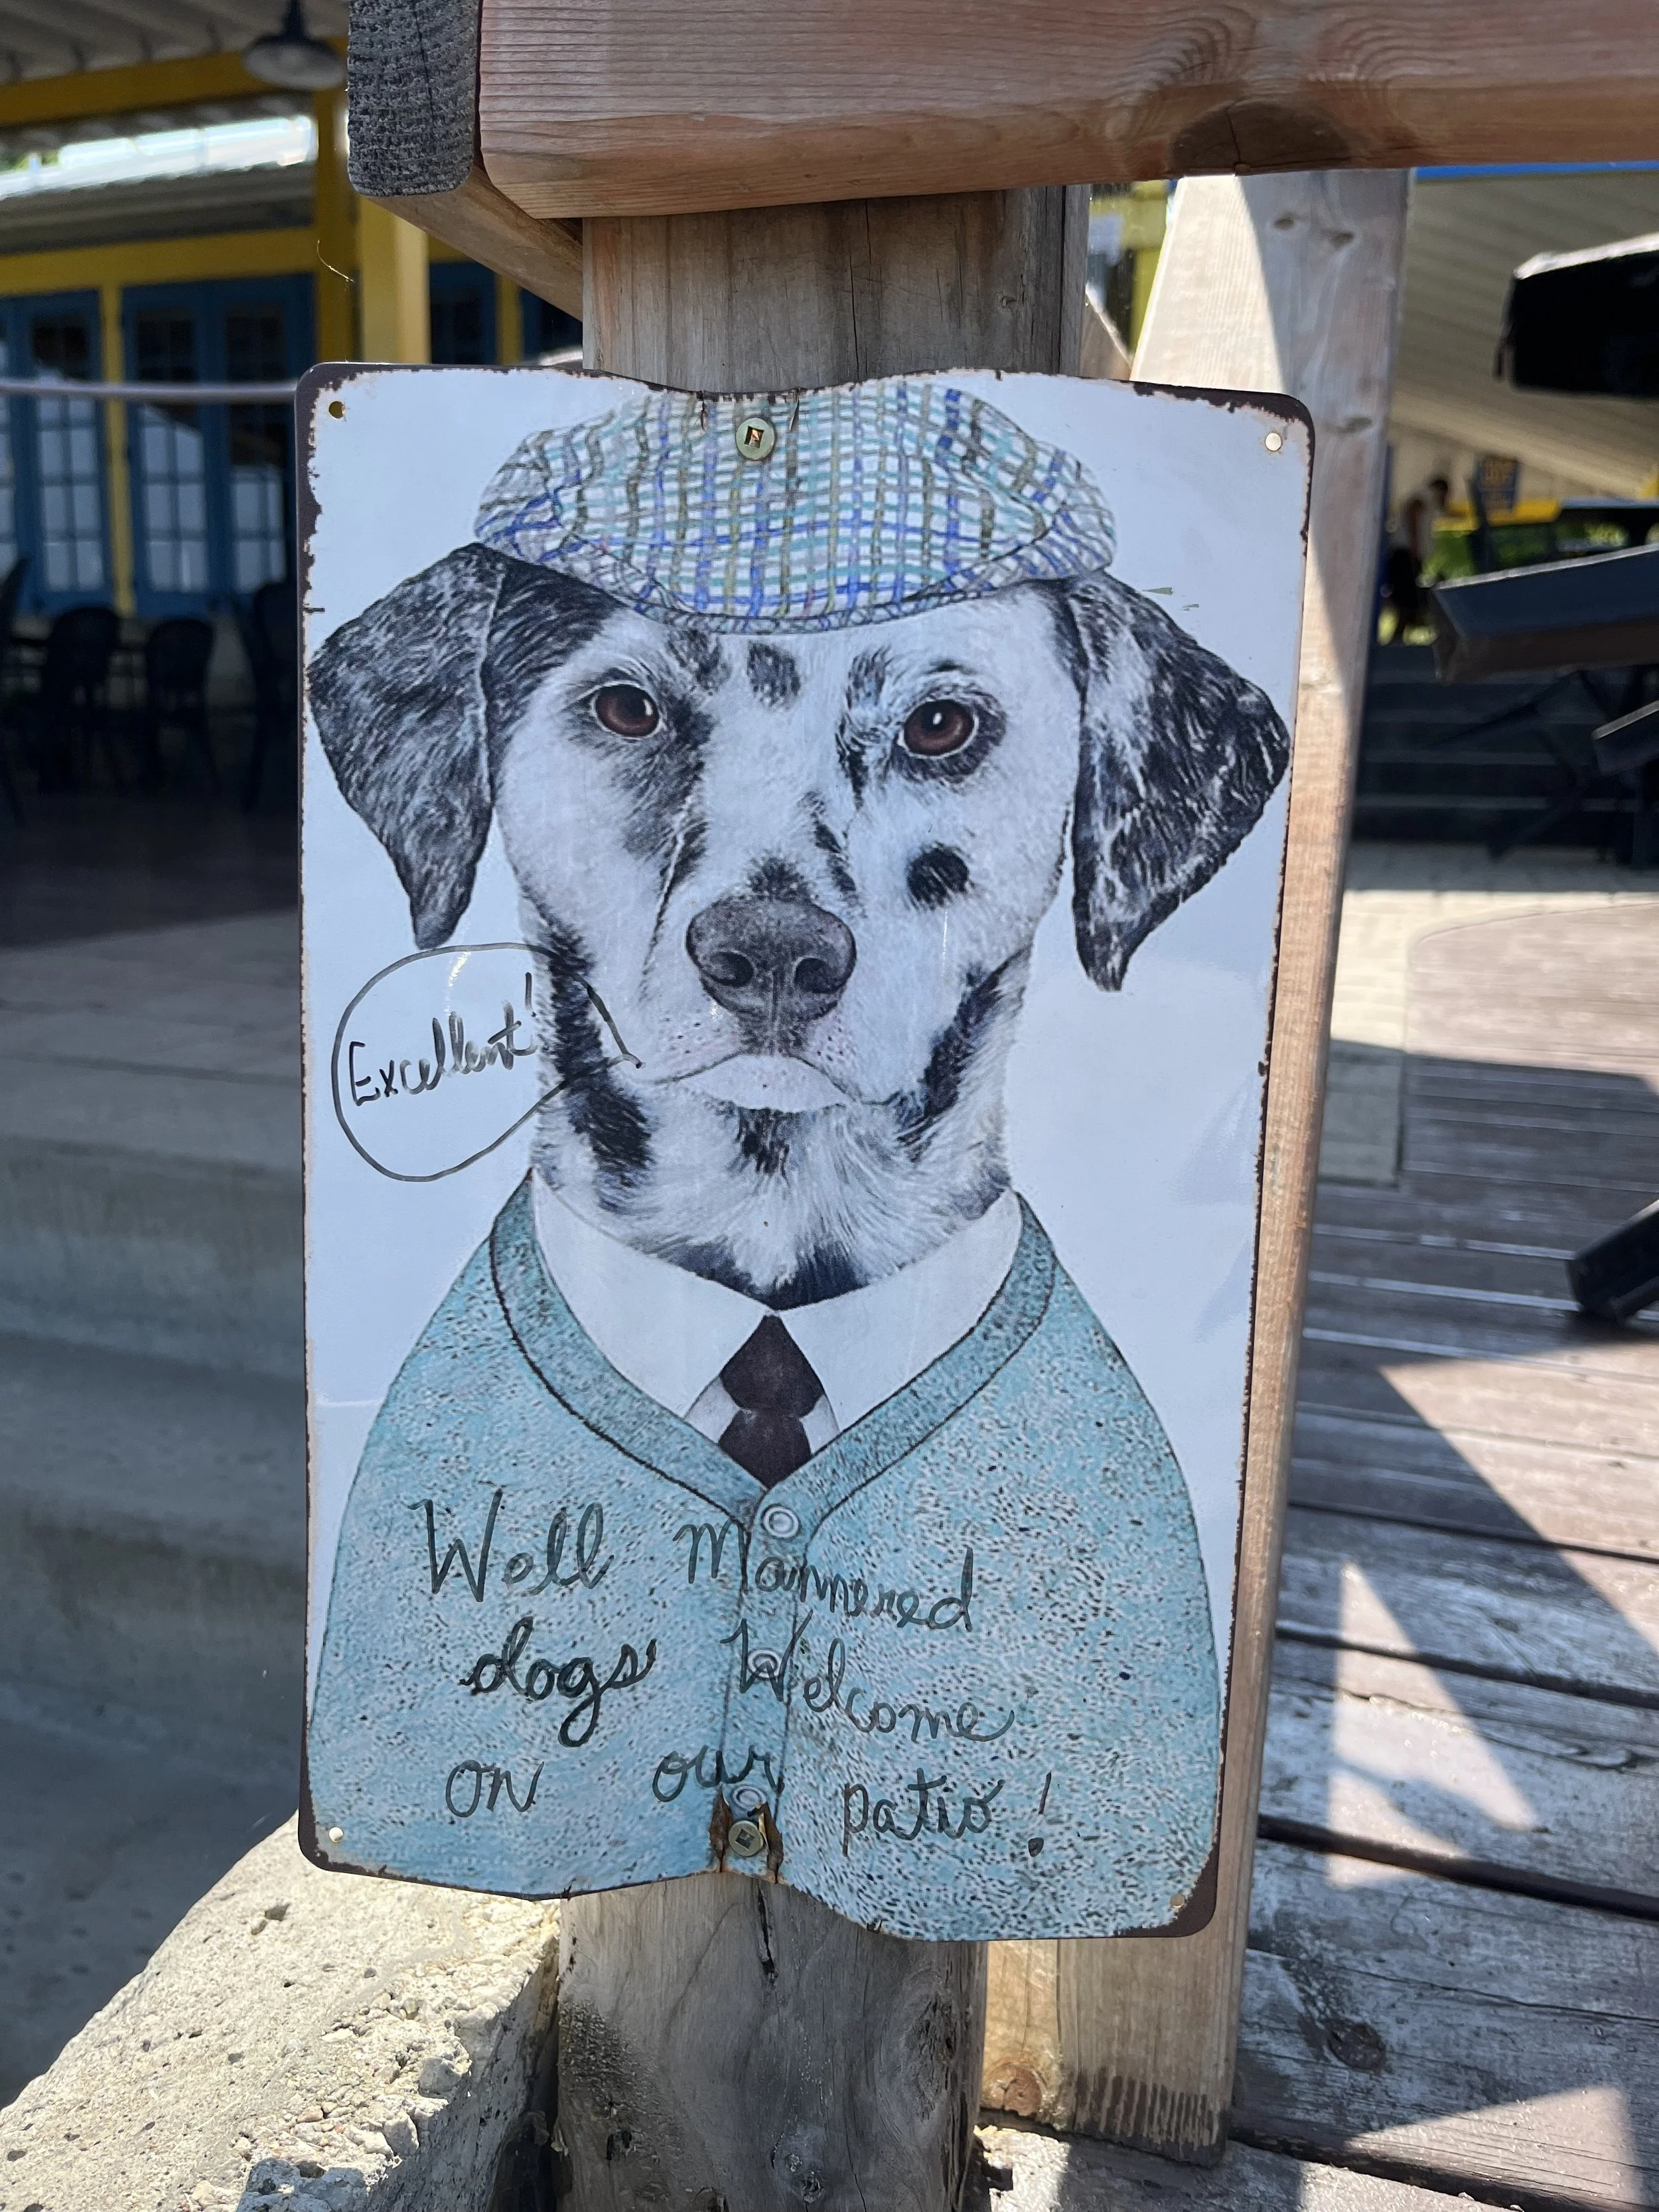 Excellent!
Well Mannered
dogs Welcome
on our patio!